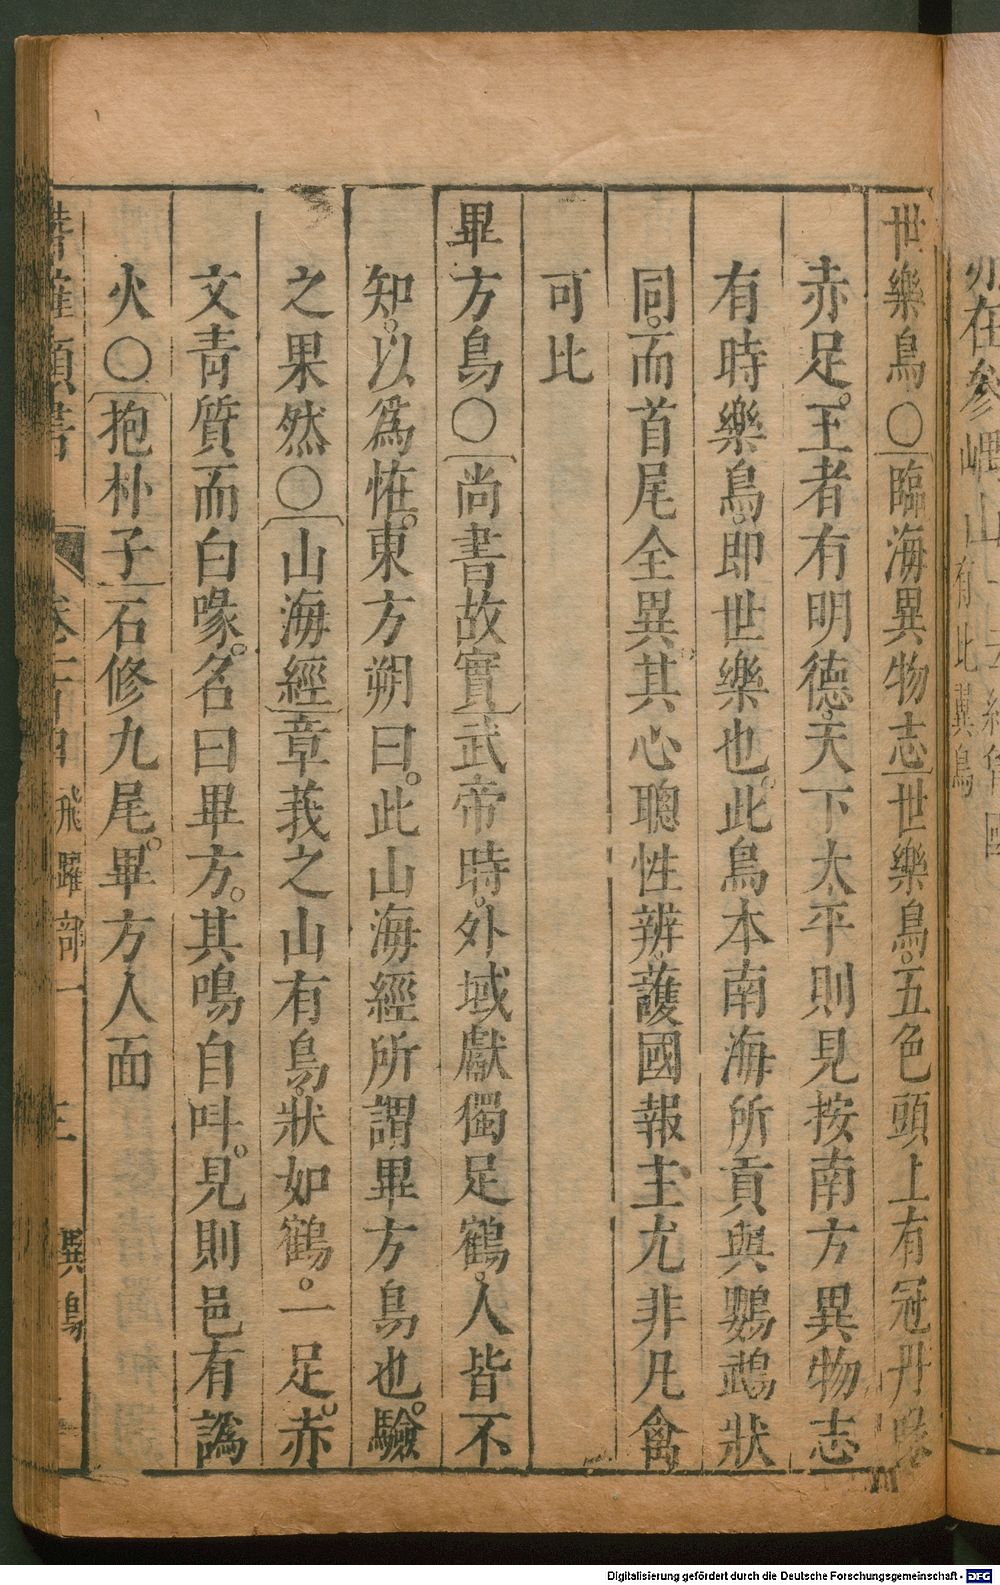 亦在參嵎山一云
有比翼鳥
世樂鳥〇臨海異物志世樂鳥五色頭上有冠丹喙
赤足王者有明德天下太平則見按南方異物志
有時樂鳥即世樂也此鳥本南海所貢與鸚鵡狀
同而首尾全異其心聰性辨護國報主尤非凡禽
可比
畢方鳥〇尚書故實武帝時外域獻獨足鶴人皆不
知以爲恠東方朔曰此山海經所謂畢方鳥也驗
之果然〇山海經章莪之山有鳥狀如鶴一足赤
文青質而白喙名曰畢方其鳴自呌見則邑有譌
火〇抱朴子石修九尾畢方人面
類書 飛躍部一 三 異鳥
Digitalisierung gefördert durch die Deutsche Forschungsgemeinschaft - DFG